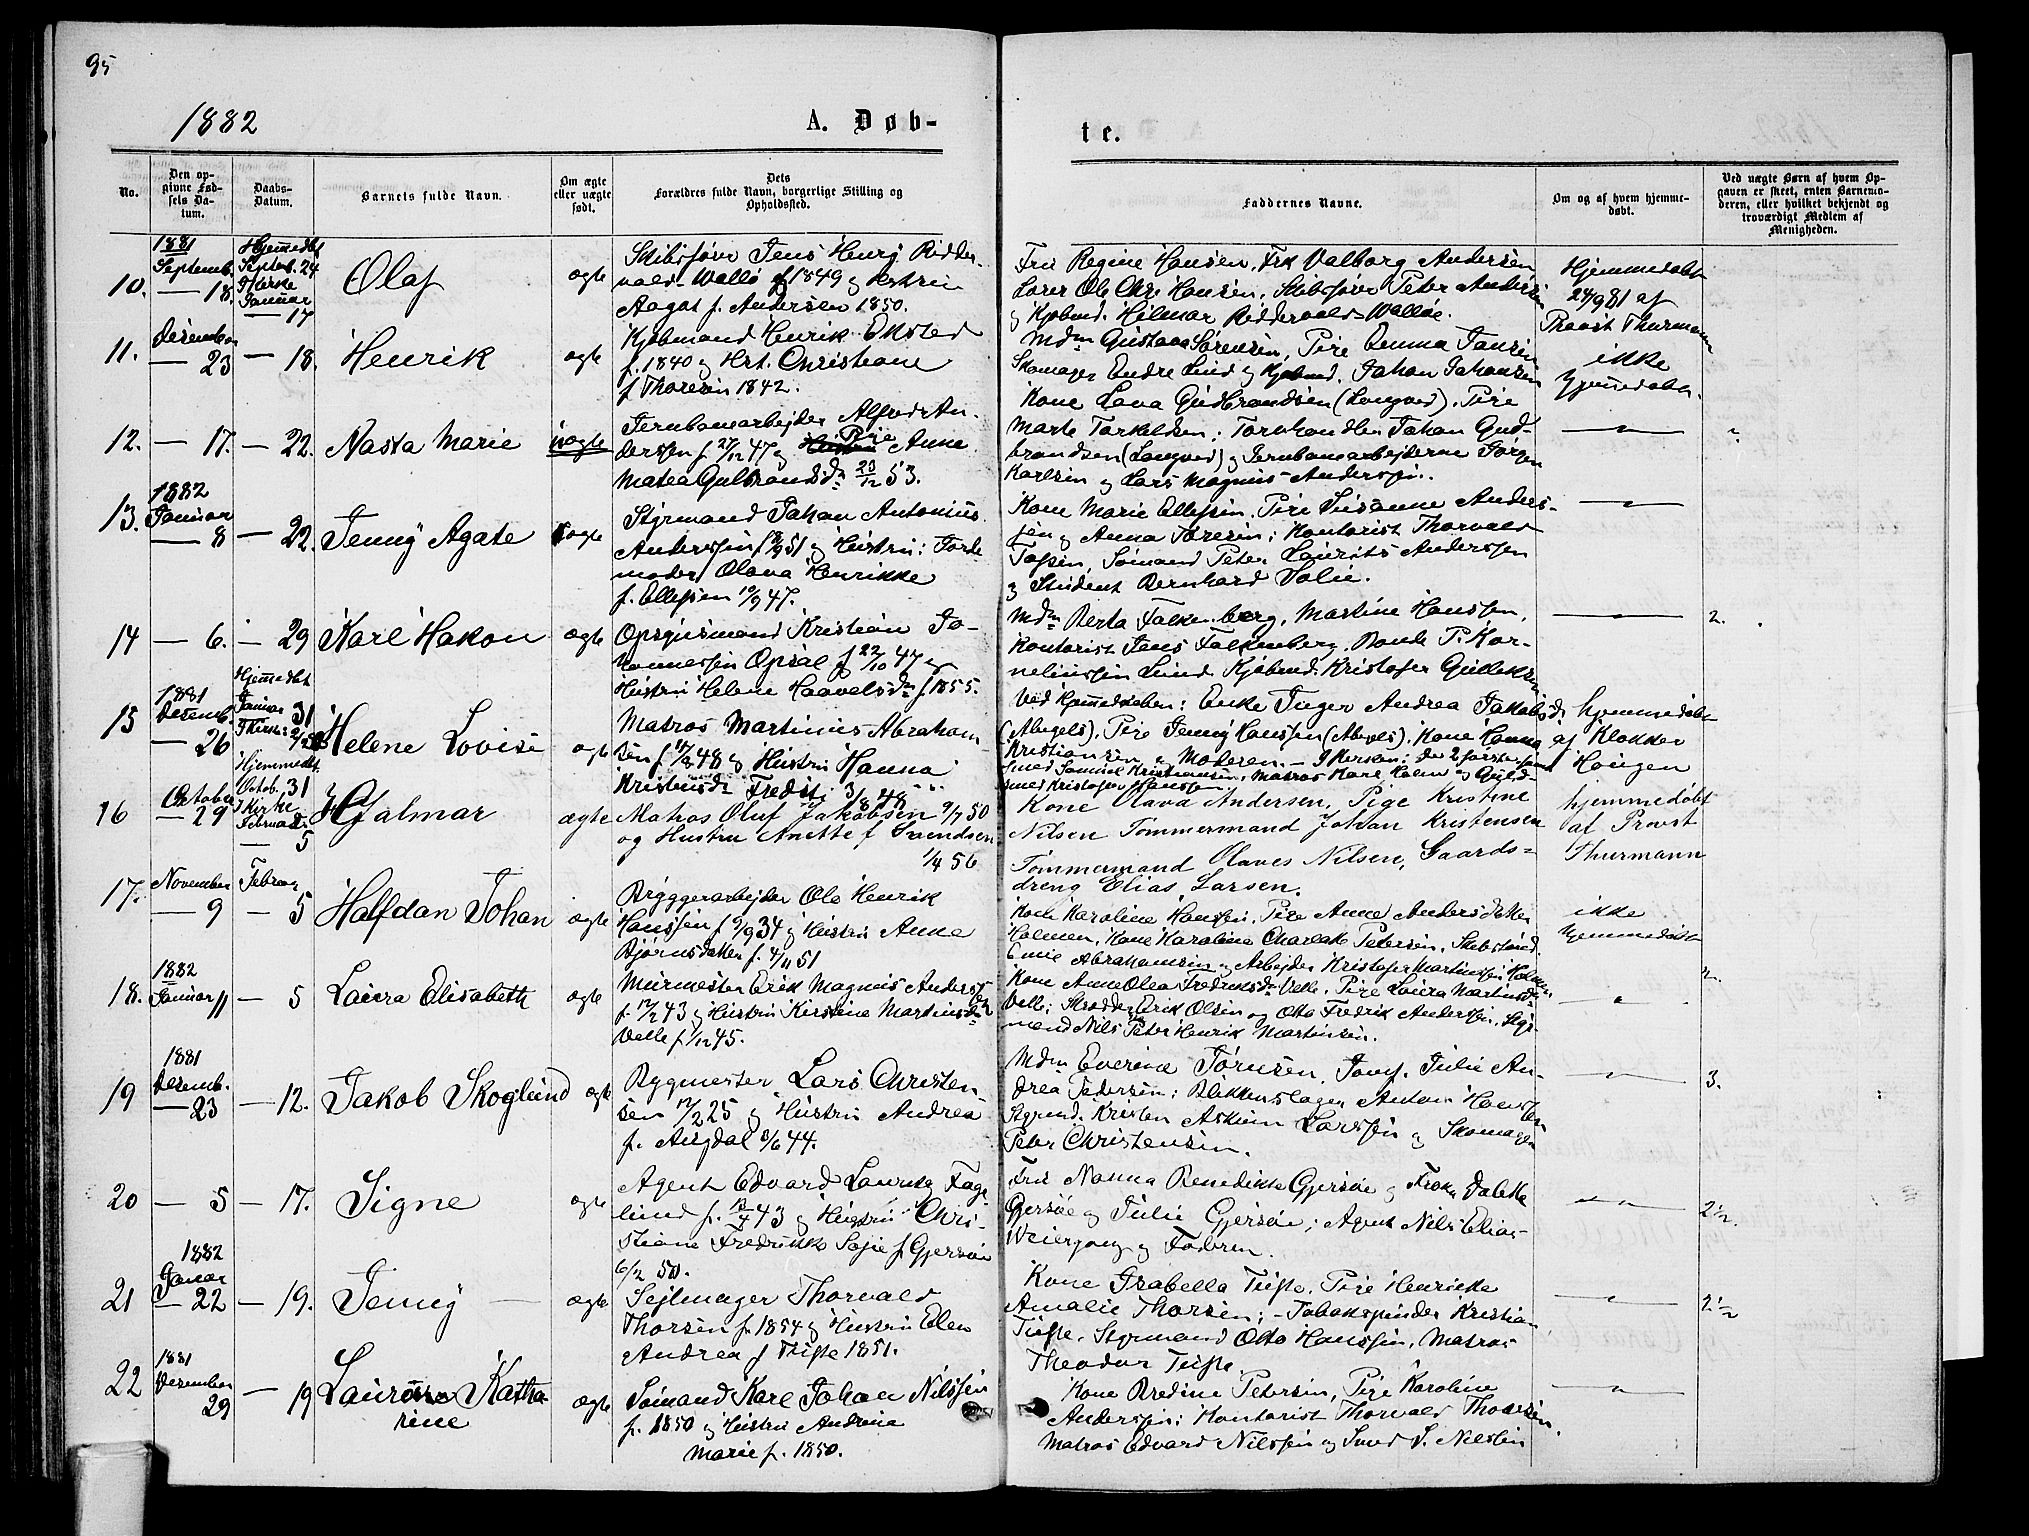 95
1882
A. Døb-
te.
No.
Den op-
givne Fød-
sels Da-
tum.
Daabs-
Datum.
Barnets fulde Navn.
Om ægte
eller uægte
født.
Dets
Forældres fulde Navn, borgerlige Stilling og
Opholdssted.
Faddernes Navne.
Om og af hvem hjemme-
døbt.
Ved uægte Børn af hvem Op-
gaven er skeet, enten Barnemo-
deren, eller hvilket bekjendt og
troværdigt Medlem af
Menigheden.
10.
1881
Septemb.
— 18.
Hjemmedøbt
Septeb. 24
I Kirke
Januar
— 17
Olaf
ægte
Skibsfører Jens Henry Ridder-
vold Wallø f 1849 og Hustru
Aagat f. Andersen 1850.
Frk Regine Hansen, Frk Valborg Andersen
Lærer Ole Chr. Hansen, Skibsfører Peter Andersen
og Kjøbmd. Hilmar Riddervold Walløe.
Hjemmedøbt
24/9 81 af
Provst Thurmann
11.
Desember
— 23
— 18.
Henrik
ægte
Kjøbmand Henrik Eksted
f. 1840 og Hst. Christiane
f Thoresen 1842.
Mdm Gustava Sørensen, Pige Emma Jansen
Skomager Endre Lind og Kjøbmd. Johan Johansen
ikke
hjemmedøbt.
12.
— 17.
— 22.
Nasta Marie
uægte
Jernbanearbejder Alfred An-
derssen f. 27/12 47 og Pige Anne
Matea Gulbrandsdr 23/12 53.
Kone Lava Gudbrandsen (Langved). Pige
Marte Torkeldsen; Tomthandler Johan Gud-
brandsen (Langved) og Jernbanearbejderne Jørgen
Karlsen og Lars Magnus Anderssen.
13.
1882
Januar
— 8
— 22.
Jenny Agate
ægte
Styrmand Johan Antonius
Anderssen f 51 og Hustru: Jorde-
moder Olava Henrikke
f. Ellefsen 10/9 47.
Kone Marie Ellefsen, Pige Susanne Anders-
sen og Anna Toresen; Kontorist Thorvald
Tossen, Sømand Peter Laurits Anderssen
og Student Bernhard Solie.
14
— 6.
— 29
Karl Hakon
ægte
Opsynsmand Kristian Jo-
hannessen Opsal f 22/10 47 og
Hustru Helene Haavelsdr f. 1855.
Mdm Berta Falkenberg, Martine Hanssen,
Kontorist Jens Falkenberg, Bonde P. Kor-
neliussen Lund Kjøbmd Kristofer Gulleksen
2.
15
1881
Desemb.
— 26
Hjemmedøbt
Januar 31
I Kirke
Helene Lovise
ægte
Matros Martinius Abraham-
sen f 48 og Hustru Hanna
Kristensdr Fredst. 31/8 48
Ved hjemmedaaben: Enke Inger Andrea Jakobsdr
(Abegels). Pige Jenny Hanssen (Abegels). Kone Hanna
Kristiansen og Moderen. — I Kirken: de 2 første samt
Smed Samuel Kristiansen, Matros Karl Holm og Guld-
smed Kristofer Hanssen.
hjemmedøbt
af Klokker
Haugen
16
October
— 29
Hjemmedt.
Octob. 31
I Kirke
Februar
5
Hjalmar
ægte
Matros Oluf Jakobsen 9/7 50
og Hustru Anette f Svendsen
1/4 56
Kone Olava Andersen, Pige Kristine
Nilsen Tømmermand Johan Kristensen
Tømmermand Olaves Nilsen, Gaards-
dreng Elias Larsen.
hjemmedøbt
af Provst
Thurmann
17.
November
— 9
Februar
— 5
Halfdan Johan
ægte
Bryggerarbejder Ole Henrik
Hanssen f 9/9 34 og Hustru Anne
Bjørnsdatter f. 4/11 51
Kone Karoline Hanssen, Pige Anne Andersdatter
Holmen, Kone Karoline Charlotte Petersen, Skibstømd
Emil Abrahamsen og Arbejder Kristofer Martinssen Holmen
ikke
hjemmedøbt
18.
1882
Januar 11
— 5
Laura Elisabeth
ægte
Murmester Erik Magnus Anderss
f. 17/2 43 og Hustru Kirstine Martinsdr
Velle f 1/12 45.
Kone Anne Olea Fredriksdr Velle, Pige Laura Martinsdr
Velle; Skrædder Erik Olsen og Otto Fredrik Anderssen, Styr-
mand Nils Peter Henrik Martinsen.
19
1881
Desemb.
— 23
— 12.
Jakob Skoglund
ægte
Bygmester Lars Christen-
sen 17/2 25 og Hustru Andrea
f. Augdal 8/6 44.
Mdm Everine Tørnsen, Jomf. Julie An-
drea Pedersen; Blikkenslager Anton Hanssen
Styrmd. Kristen Askum Larssen og Skomager
Peter Christensen.
3.
20
— 5
— 17.
Signe
ægte
Agent Edvard Lauritz Fag-
lund f. 43 og Hustru Chris-
tiane Fredrikke Sofie f. Gjersøe
6/12 50.
Frk Nanna Benedikte Gjersøe og Frøken Dalette
Gjersøe og Julie Gjersøe; Agent Nils Elias
Weiergang og Faderen.
2 1/2.
21
1882
Januar
— 22
— 19.
Jenny
ægte
Sejlmager Thorvald
Thorsen f. 1854 og Hustru Elen
Andrea f Tufte 1851.
Kone Isabella Tufte, Pige Henrikke
Amalie Thorsen; — Tobakspinder Kristian
Tufte, Styrmand Otto Hanssen, Matros
Theodor Tufte.
2 1/2
22
1881
Desember
29
— 19
Laura Katha
rine
ægte
Sømand Karl Johan Nilssen
f. 1850 og Hustru Andrine
Marie f. 1850.
Kone Bredine Petersen, Pige Karoline
Anderssen; Kontorist Thorvald Thoresen,
Matros Edvard Nilssen og Smed S. Nilssen